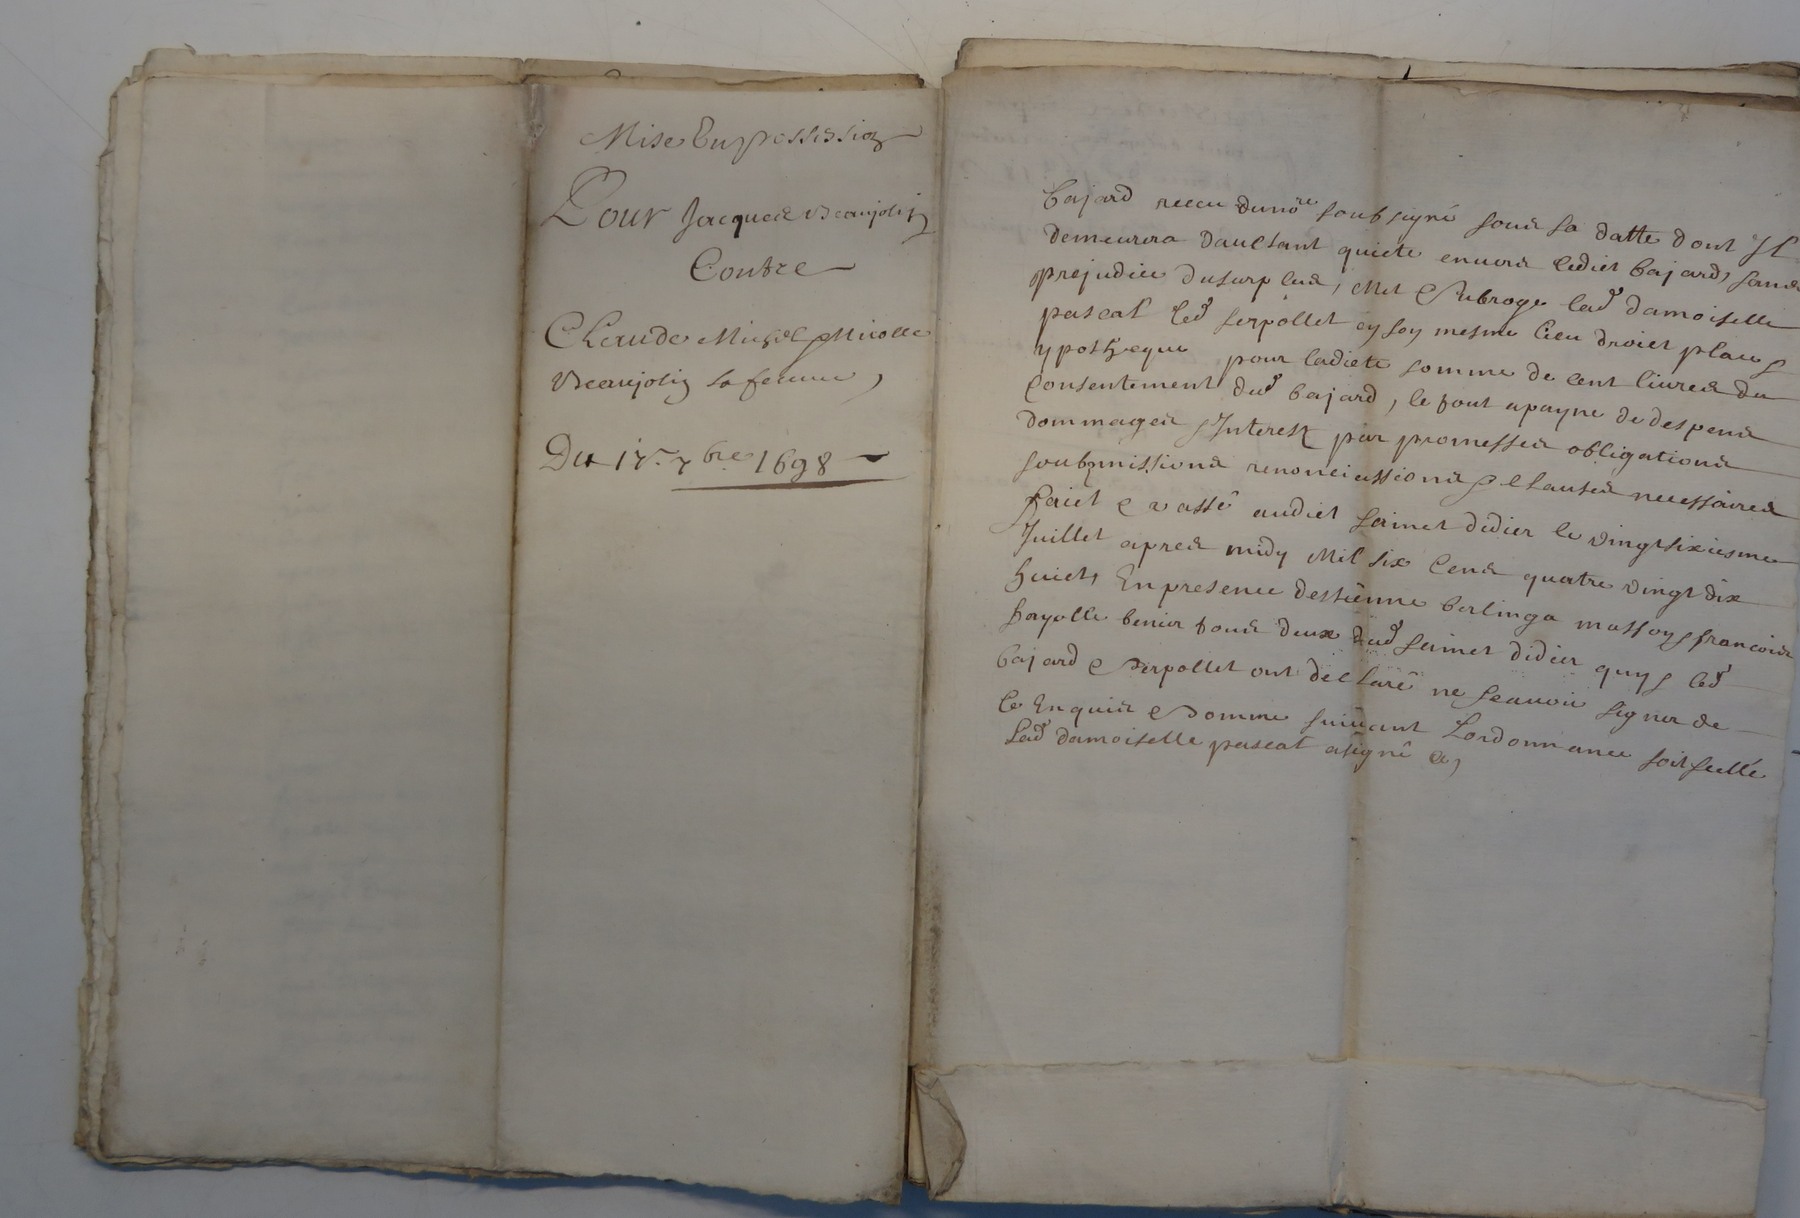 Mise En possession
Pour Jacques Beaujolin
Contre
Claude Michel & Nicolle
Beaujolin sa femme,
Du 17e 7bre 1698
bajard receu du nore soubsigné sous sa datte dont Il
demeurera daultant quicte envers ledict bajard, sans
prejudice du surplus, Met & subroge lad damoiselle
pascal led serpollet en soy mesme lieu droict place &
ypotheque pour ladicte somme de cent livres du
Consentement dud bajard, le tout a payne de despens
dommages & Interest par promesses obligations
soubzmissions renonciassions & clauses necessaires
faict & passé audict sainct didier le vingt sixiesme
Juillet apres midy Mil six Cens quatre vingt dix
huict, En presence destienne berlinga masson & francois
fayolle tous deux dud sainct didier quy & led
bajard & serpollet ont declaré ne scavoir signer de
ce Enquis & somme suivant Lordonnance soit scellé
Lad damoiselle pascal a signé &,